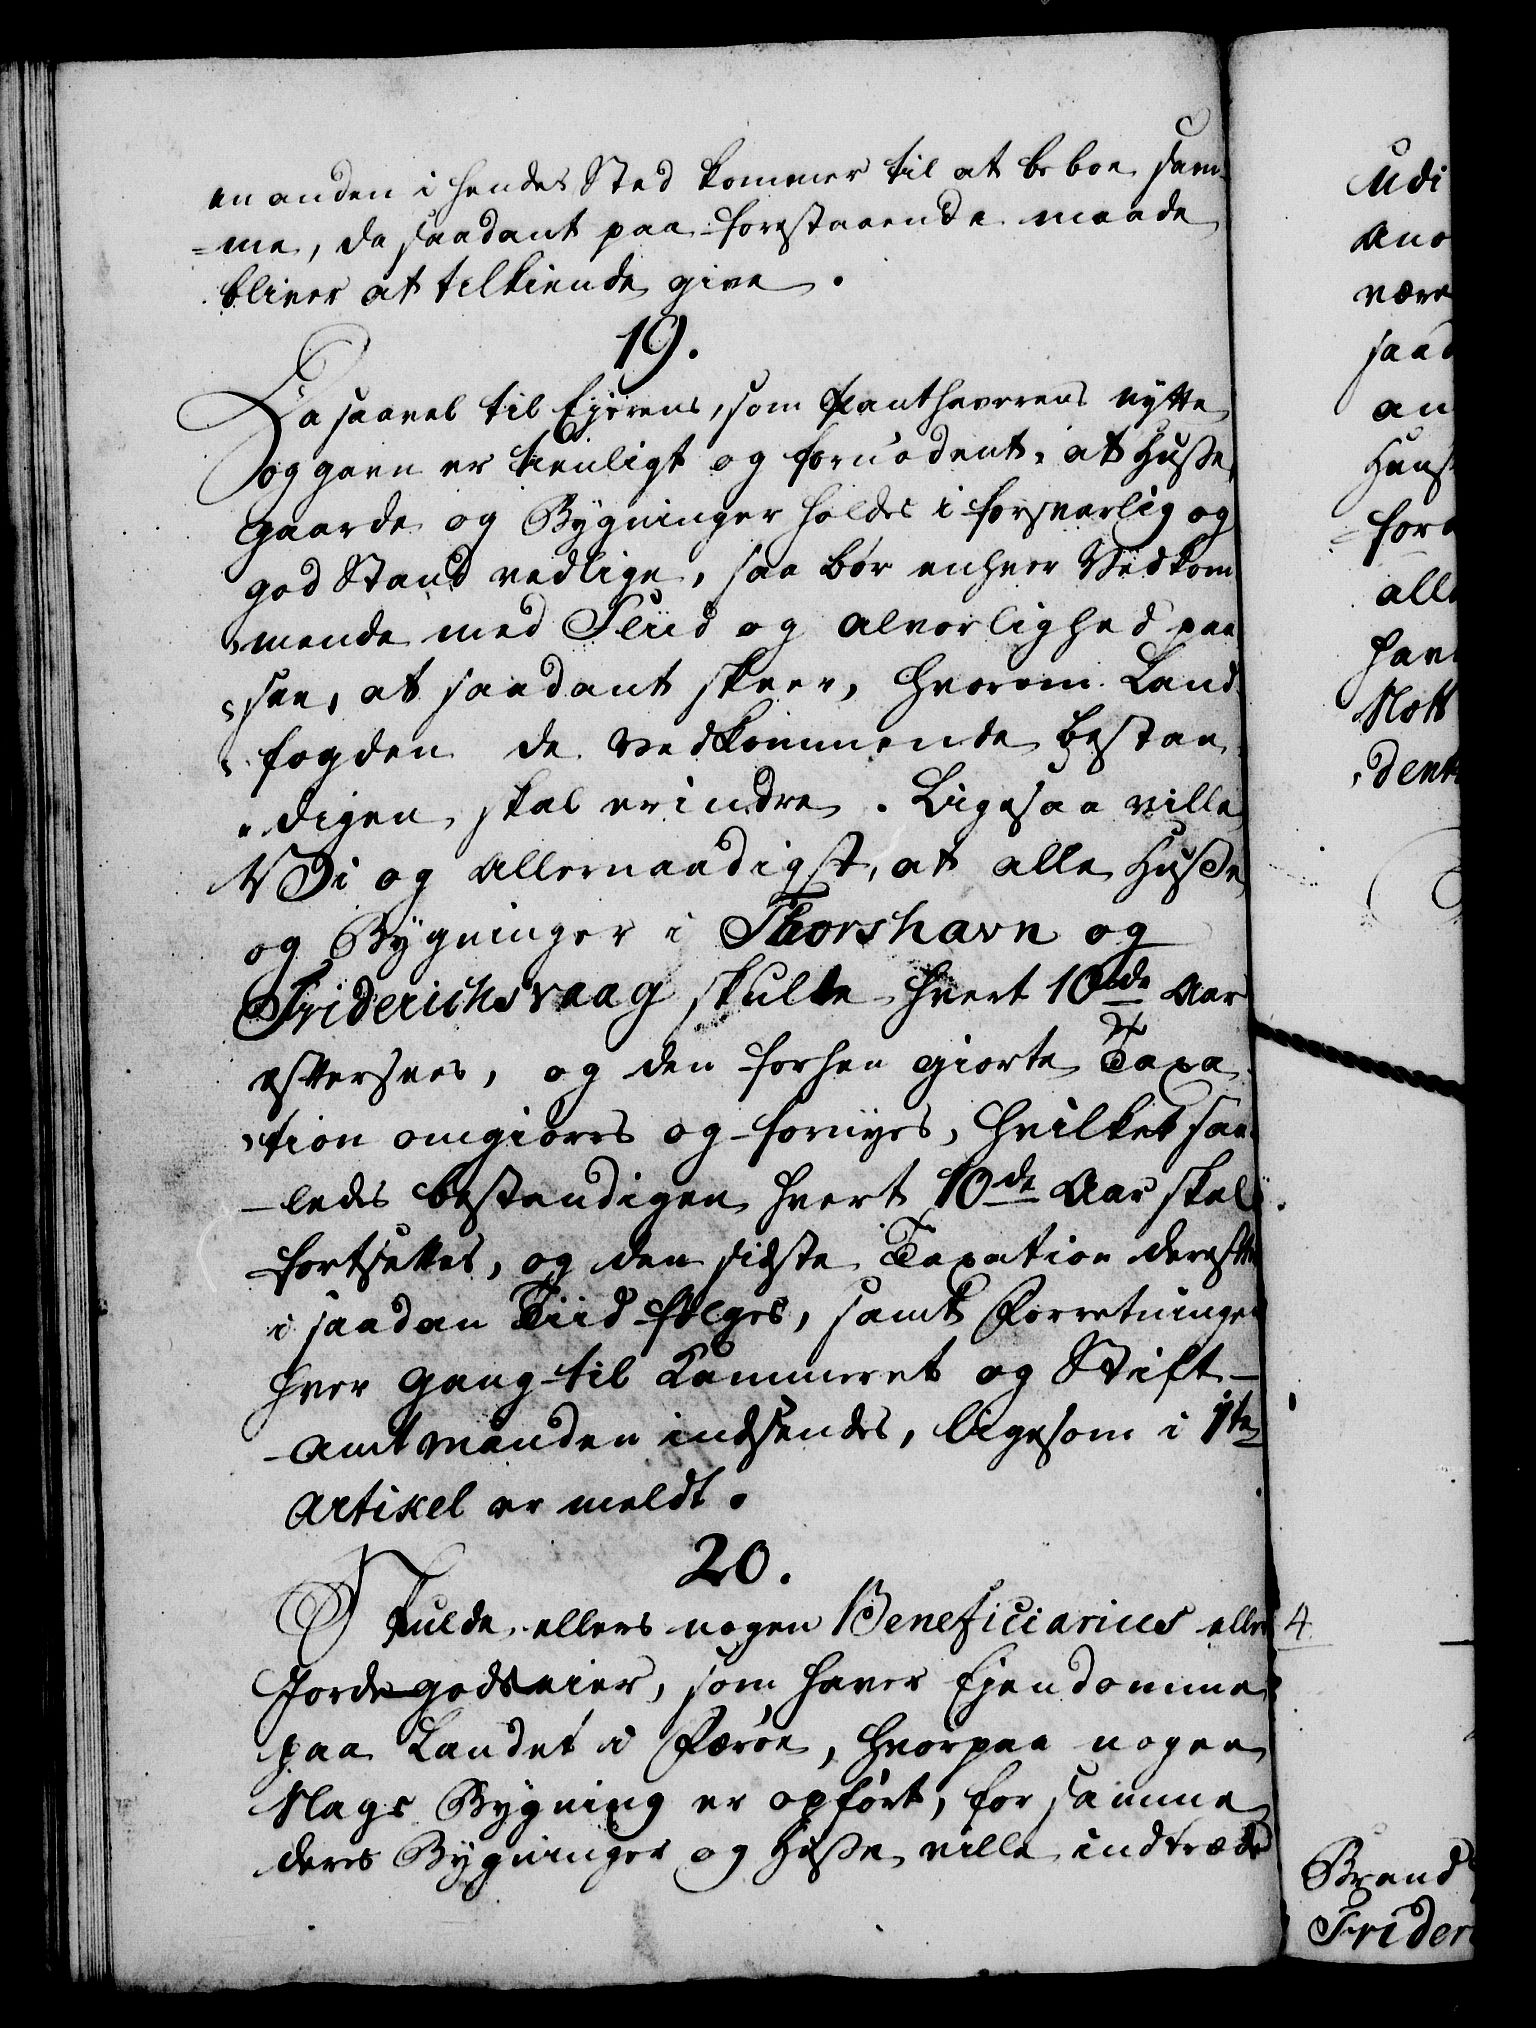 en anden i hendes Sted kommer til at beboe sam-
=me, da saadant paa forestaaende maade
bliver at tilkiende give.
19.
Da saavel til Ejerens, som Panthaverens nytte
og gavn er tienligt og fornødent, at Huse,
gaarde og Bygninger holdes i forsvarlig og
god Stand vedlige, saa bør enhver Vedkom-
mende med Fliid og alvorlighed paa-
see, at saadant skeer, hvorom Land-
fogden de vedkommende bestæn-
digen skal erindre. Ligesaa ville
Vi og allernaadigst, at alle Huse
og Bygninger i Thorshavn og
Friderichsvaag skulle hvert 10de Aar
eftersees, og den forhen giorte Taxa-
tion omgiøres og fornyes, hvilket saa-
-ledes bestændigen hvert 10de Aar skal
fortsættes, og den sidste Taxation derefter
i saadan Tiid følges, samt Forretningen
hver gang til Kammeret og Stift-
-amtmanden indsendes, ligesom i 1te
Artikel er meldt.
20.
Skulde ellers nogen Beneficiarius eller
Jordegodseier, som haver Ejendomme
paa Landet i Færøe, hvorpaa nogen
Slags Bygning er opført, for samme
deres Bygninger og Huse ville indtræde
4.
Udi
Ano
være
saad
an
Huus
=for
all
hav
Nott
dent
Brand
Frider